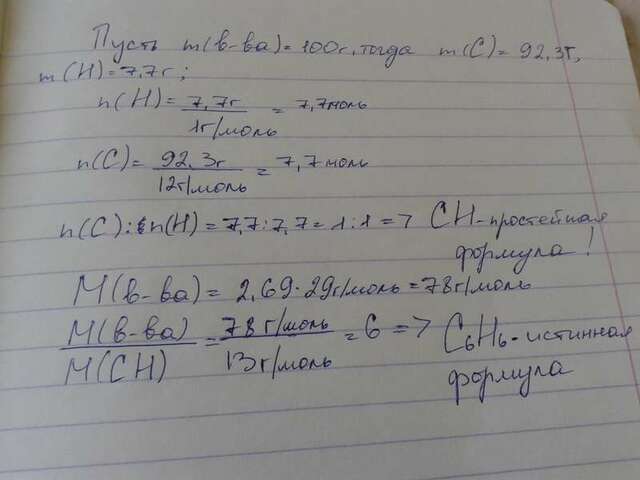 Пусть m(в-ва)=100г, тогда m(C)=92,3г,
m(H)=7,7г;
n(H)=7,7г/1г/моль=7,7моль
n(C)=92,3г/12г/моль=7,7моль
n(C):n(H)=7,7:7,7=1:1=> CH-простейшая
формула!
M(в-ва)=2,69·29г/моль=78г/моль
M(в-ва)/M(CH)=78г/моль/13г/моль=6=> C₆H₆-истинная
формула